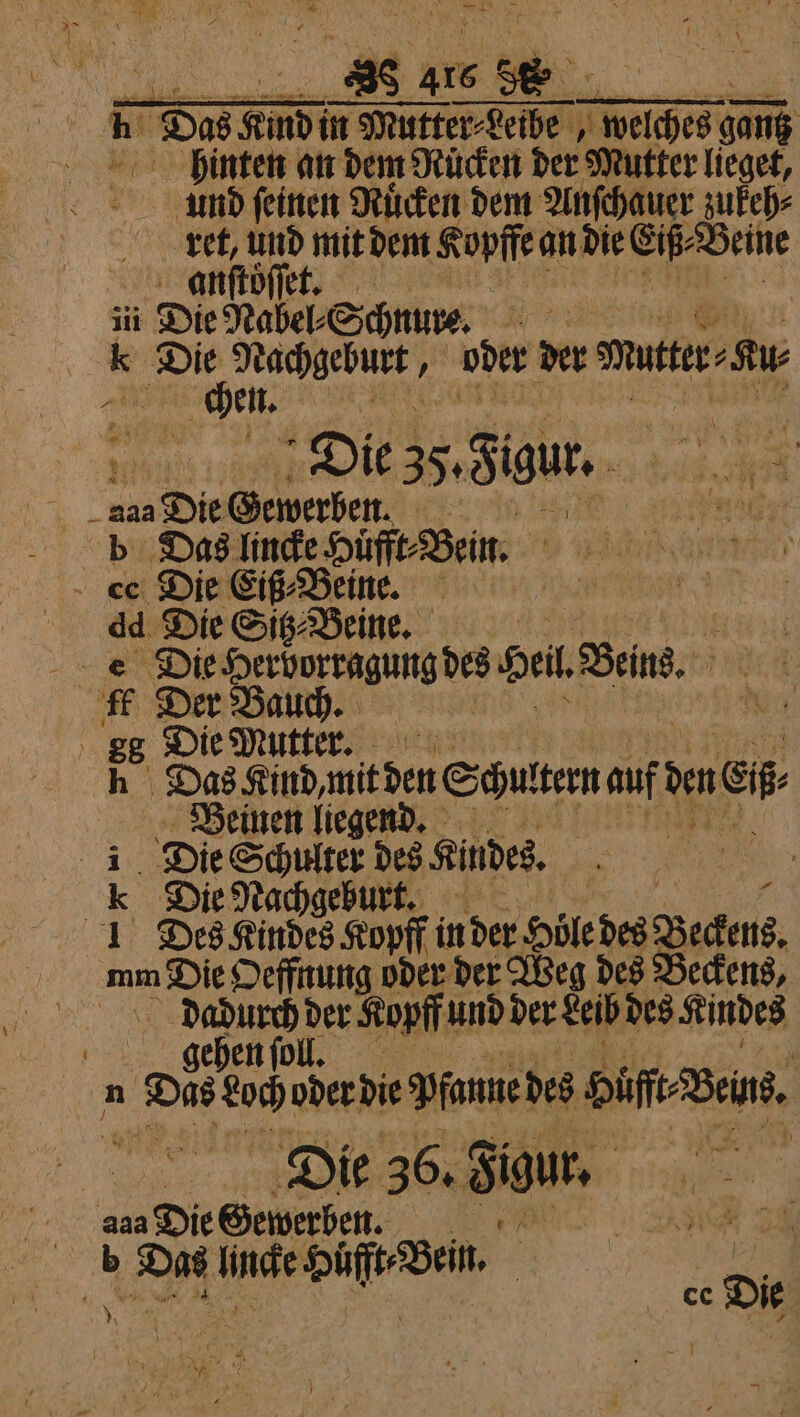 416
h Das Kind in Mutter-Leibe, welches gantz
hinten an dem Ruͤcken der Mutter lieget,
und ſeinen Ruͤcken dem Anſchauer zukeh-
ret, und mit dem Kopffe an die Eiß-Beine
anſtoͤſſet.
iii Die Nabel-Schnure.
k Die Nachgeburt, oder der Mutter-Ku-
chen.
Die 35. Figur.
aaa Die Gewerben.
b Das lincke Huͤfft-Bein.
cc Die Eiß-Beine.
dd Die Sitz-Beine.
e Die Hervorragung des Heil. Beins.
ff Der Bauch.
gg Die Mutter.
h Das Kind, mit den Schultern auf den Eiß-
Beinen liegend.
i Die Schulter des Kindes.
k Die Nachgeburt.
l Des Kindes Kopff in der Hoͤle des Beckens.
mm Die Oeffnung oder der Weg des Beckens,
dadurch der Kopff und der Leib des Kindes
gehen ſoll.
n Das Loch oder die Pfanne des Huͤfft-Beins.
Die 36. Figur.
aaa Die Gewerben.
b Das lincke Huͤfft-Bein.
cc Die